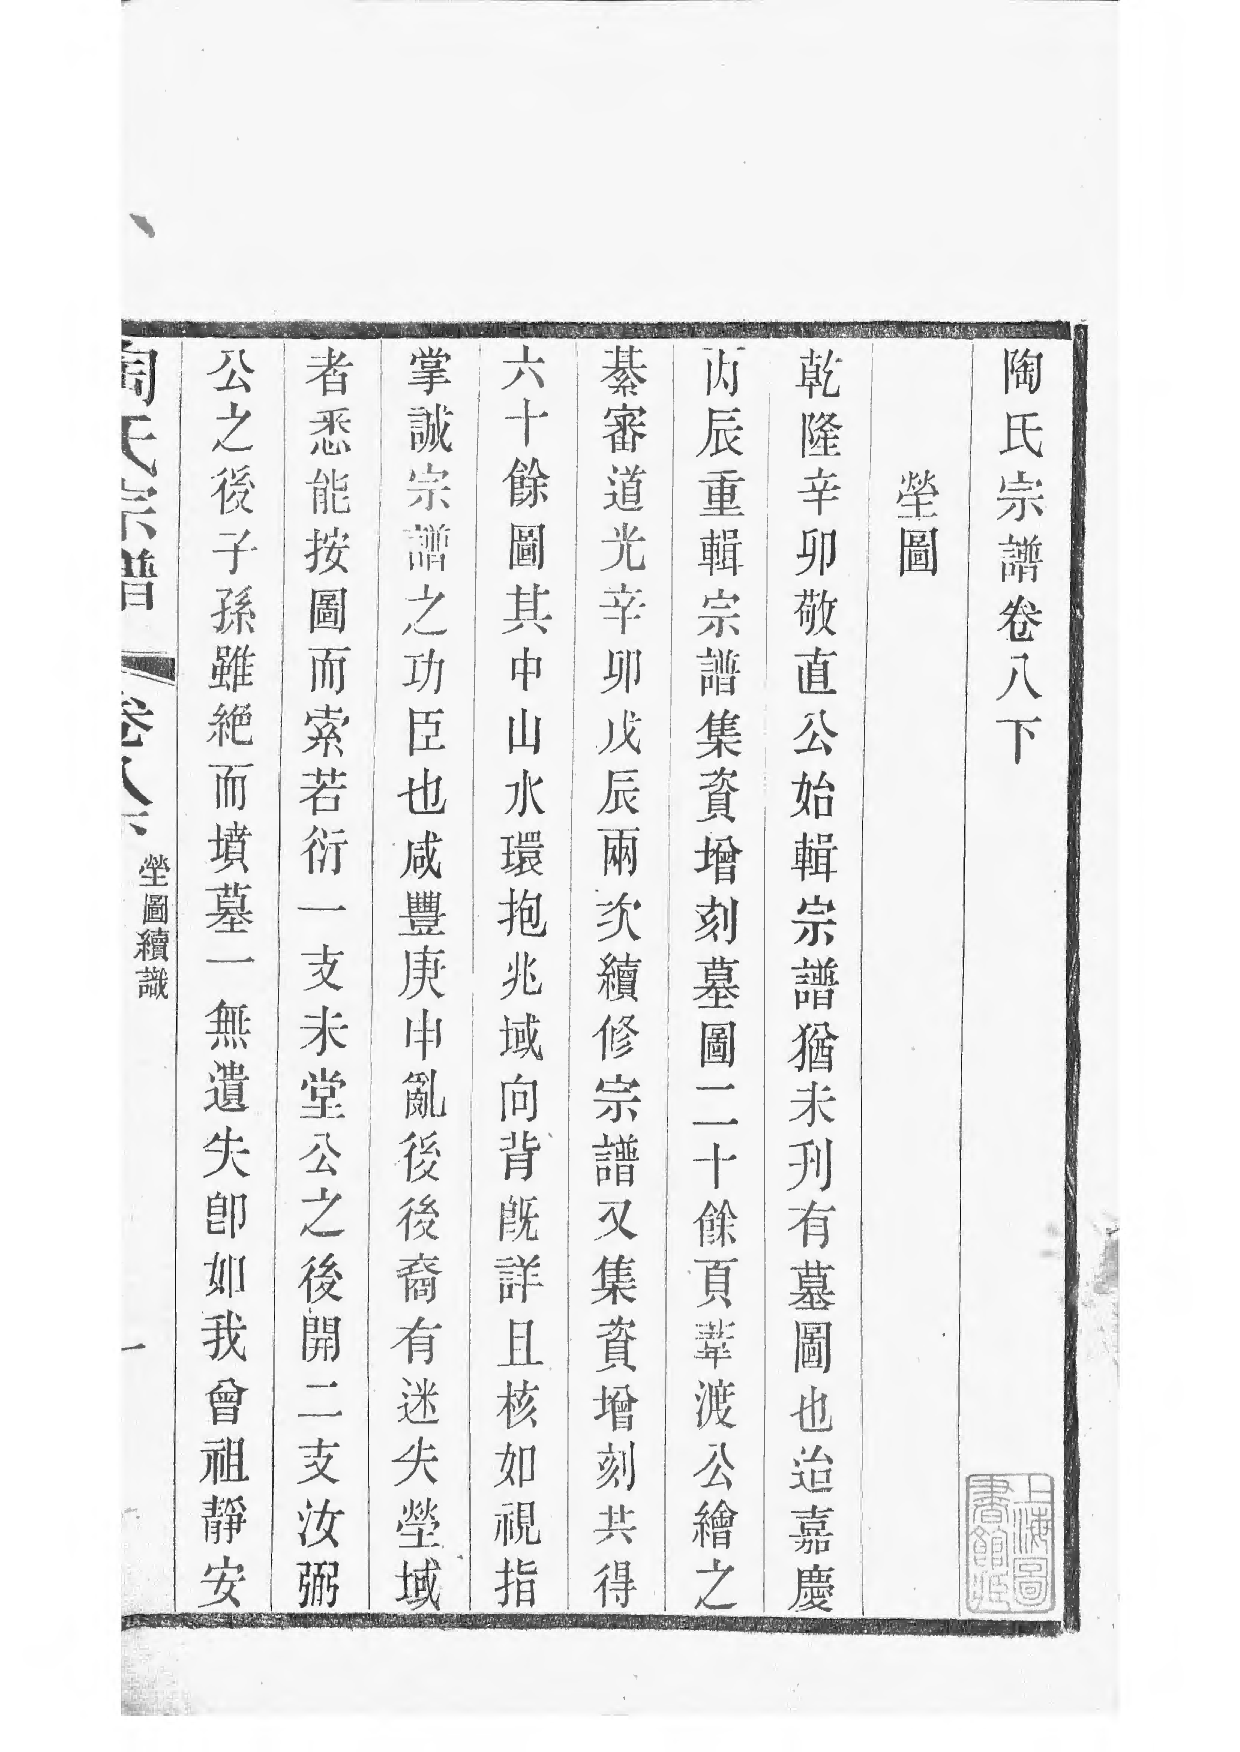 陶氏宗譜卷八下
塋圖
乾隆辛卯敬直公始輯宗譜猶未刋有墓圖也迨嘉慶
丙辰重輯宗譜集資增刻墓圖二十餘頁葦渡公繪之
綦審道光辛卯戊辰兩次續修宗譜又集資增刻共得
六十餘圖其中山水環抱兆域向背旣詳且核如視指
掌誠宗譜之功臣也咸豐庚申亂後後裔有迷失塋域
者悉能按圖而索若衍一支未堂公之後開二支汝弼
公之後子孫雖絕而墳墓一無遺失卽如我曾祖靜安
陶氏宗譜 卷八下 塋圖續識 一
上海圖書館藏